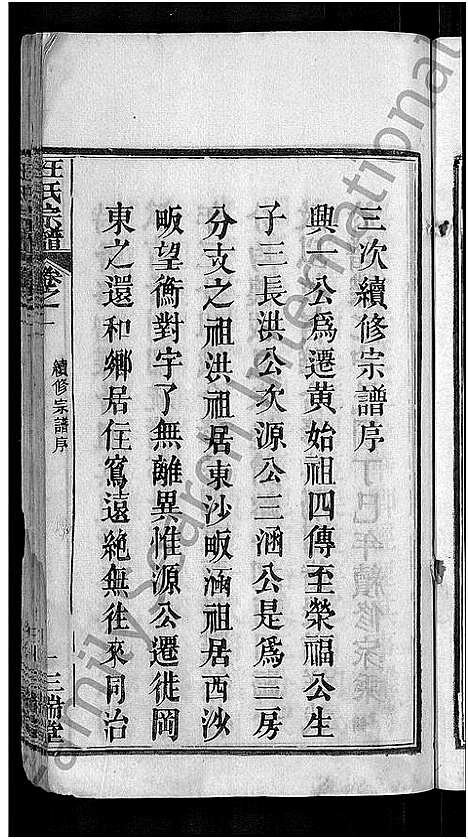 三次續修宗譜序
興一公爲遷黃始祖四傳至榮福公生
子三長洪公次源公三涵公是爲三房
分支之祖洪祖居東沙畈涵祖居西沙
畈望衡對宇了無離異惟源公遷徙岡
東之還和鄉居住寫遠絶無往來同治
汪氏宗譜
卷之一
續修宗譜序
一
三瑞堂
丁巳年續修宗
FamilySearch International